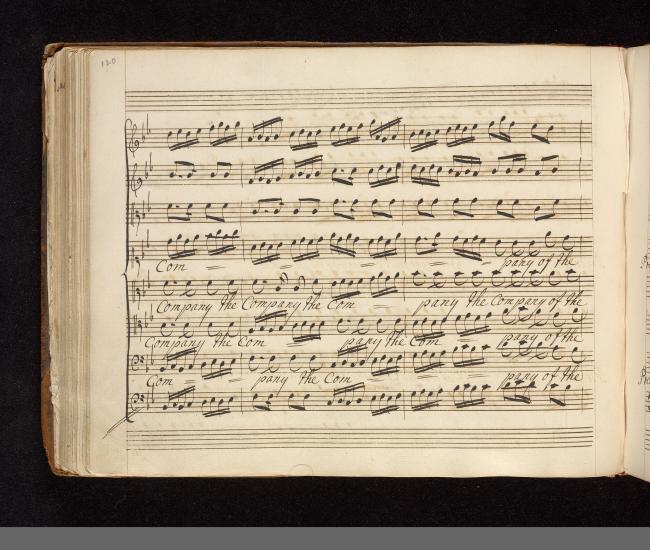 120
Com = = = pany of the
Company the Company the Com = pany the Company of the
Company the Com = pany the Com = pany of the
Com = = pany the Com = = pany of the